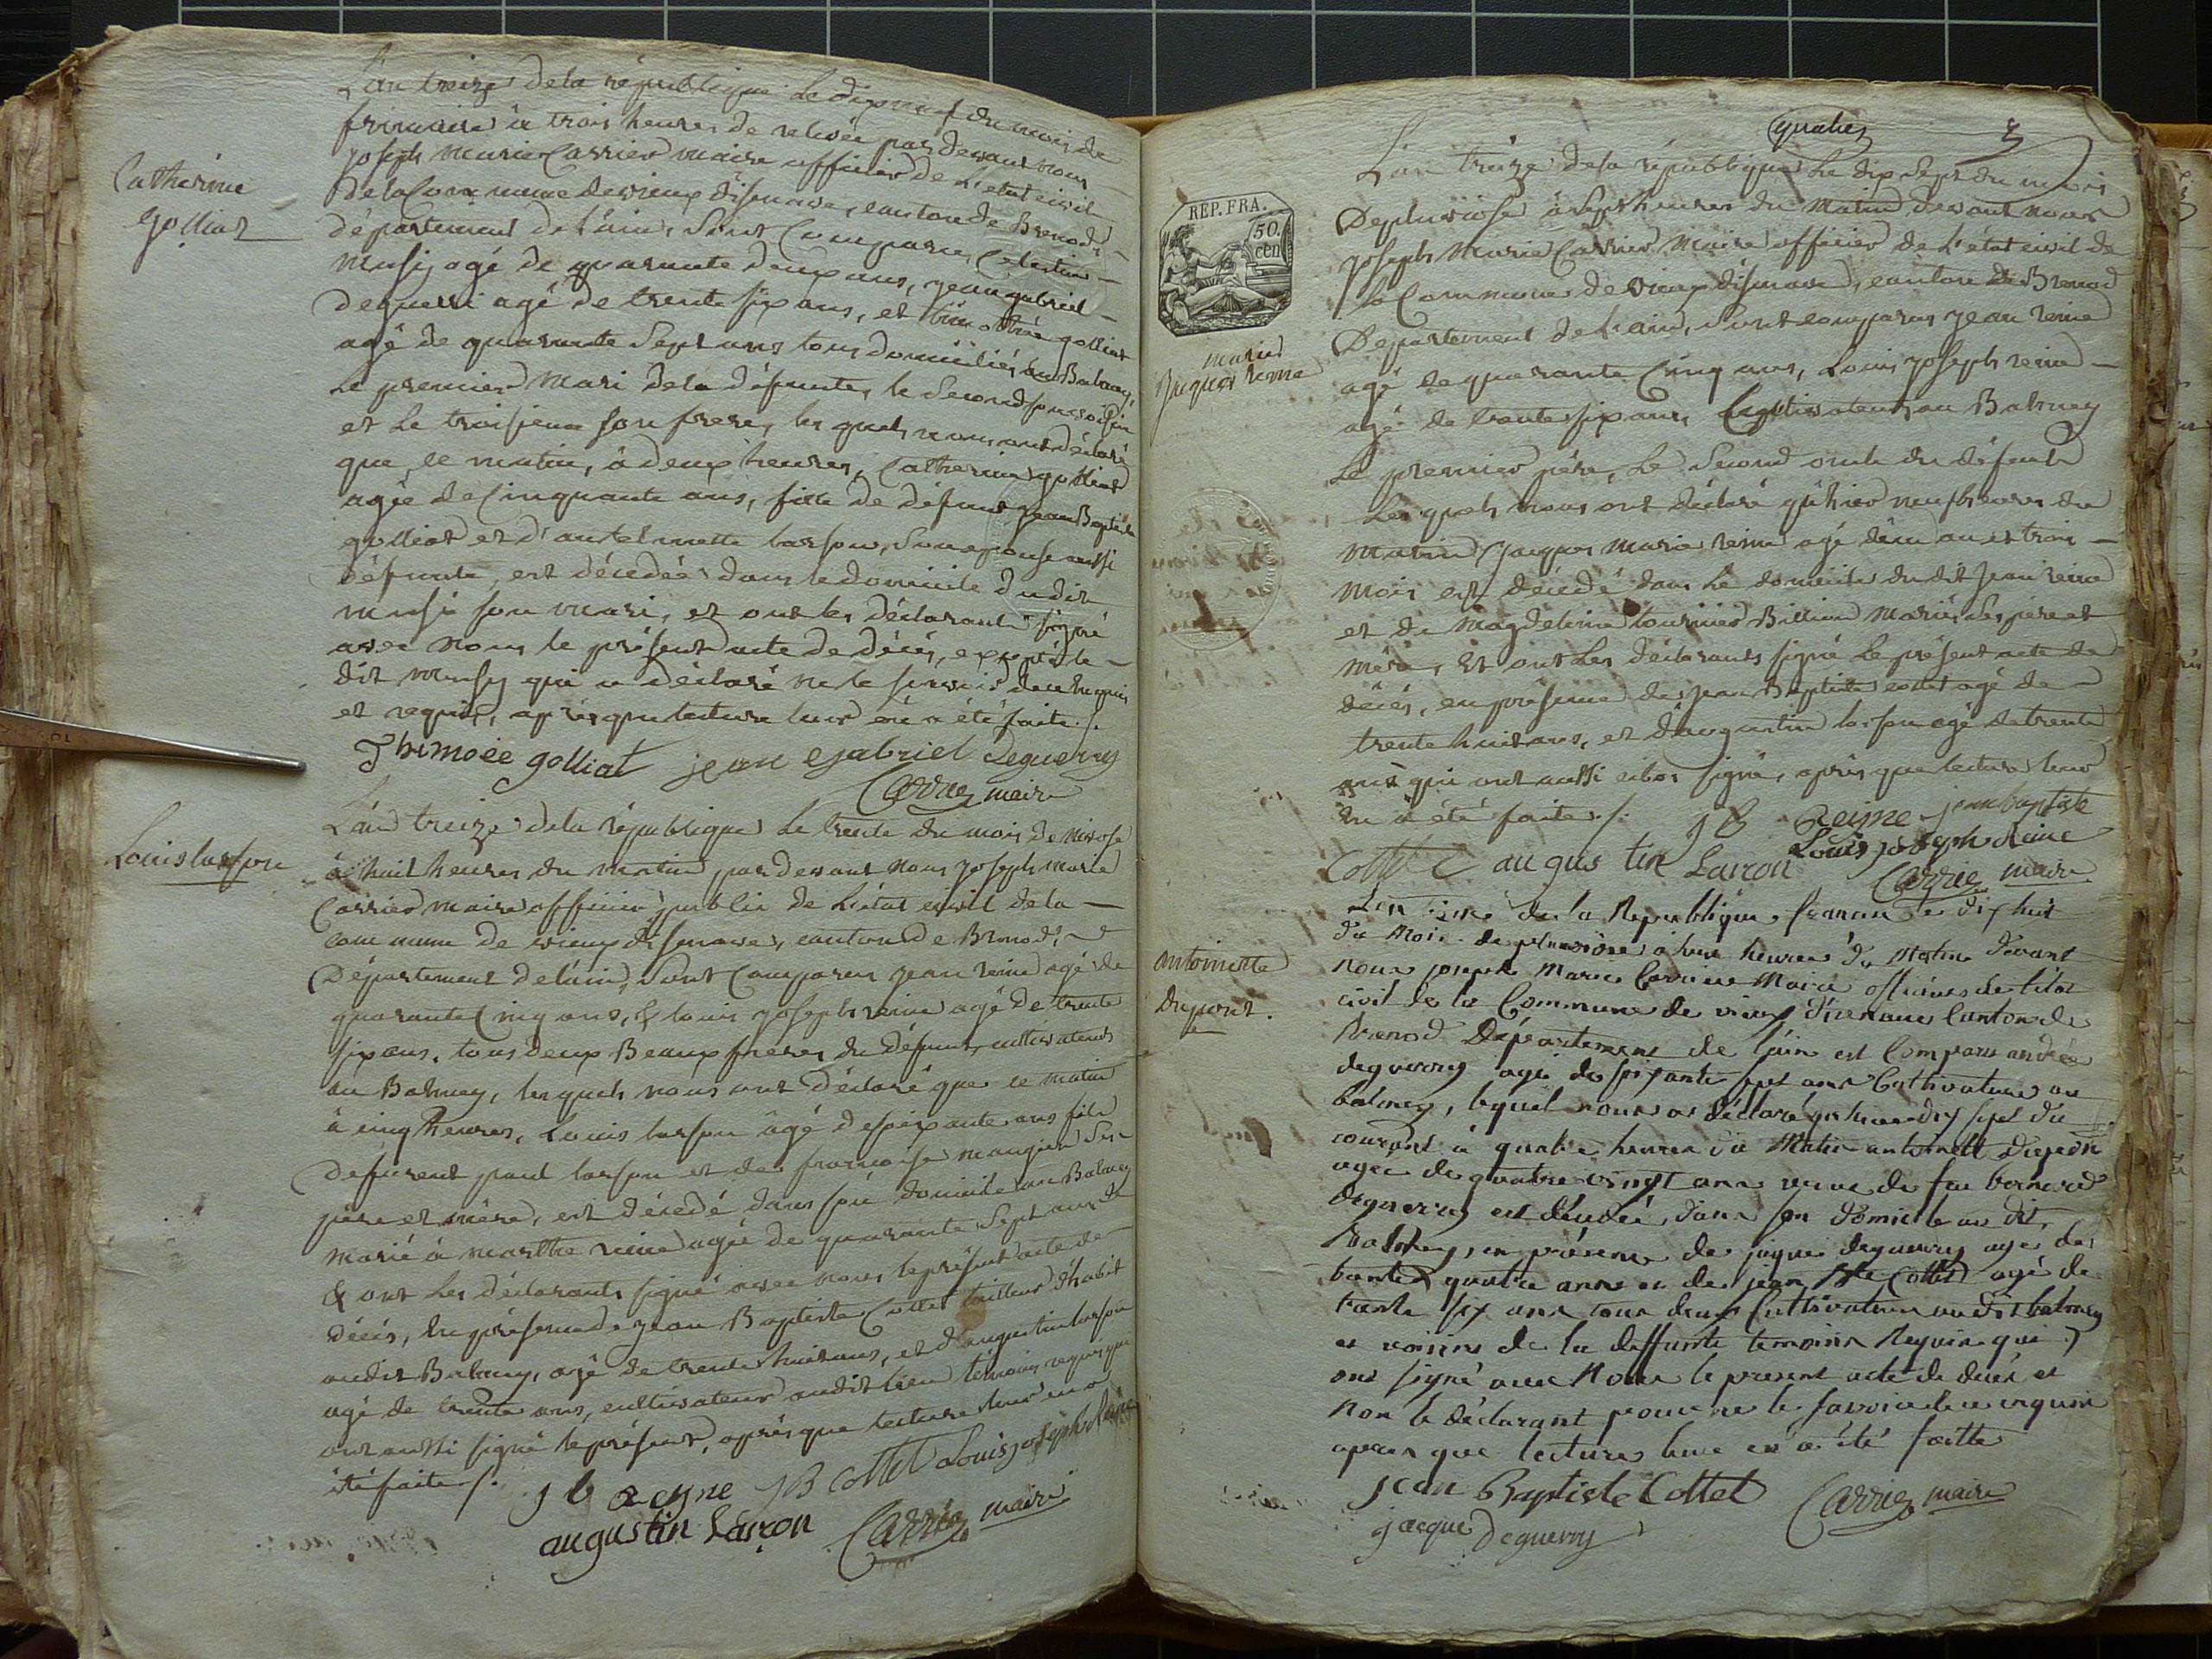 Catherine
golliat
L'an treize de la république le dix neuf du mois de
frimaire à trois heures de relevée par devant nous
joseph marie Carrier maire officier de l'état civil
de la Commune de vieux disenave, canton de Brenod,
département de l'ain, sont Comparus,
musy agé de quarante deux ans, jean gabriel
deguerri agé de trente six ans, et golliat
agé de quarante sept ans tous domiciliés au Balmey,
le premier mari de la défunte, le second son voisin
et le troisieme son frere, les quels nous ont déclaré
que ce matin, à deux heures, Catherine golliat
agée de Cinquante ans, fille de défunt jean Baptiste
golliat et d'antelmette larson, son epouse aussi
défunte, est décedée dans le domicile du dit
musi son mari, et ont les déclarants signé
avec nous le présent acte de décés, excepté le
dit musy qui a déclaré ne le savoir de ce enquis
et requis, après que lecture leur en a été faite ./.
Thimoée golliat jean gabriel deguerry
Carrier maire
Louis larson
L'an treize de la république le trente du mois de nivose
à huit heures du matin par devant nous joseph marie
Carrier maire officier public de l'état civil de la
commune de vieux disenave, canton de Brenod,
Département de l'ain, sont Comparus jean reine agé de
quarante Cinq ans, & louis joseph reine agé de trente
six ans, tous deux Beaux freres du défunt, cultivateurs
au Balmey, les quels nous ont déclaré que ce matin
à cinq heures, Louis larson âgé de soixante ans fils
de furent paul larson et de françoise mangier ses
père et mère, est décedé dans son domicile au Balmey
marié à marthe reine agée de quarante sept ans
& ont les déclarants signé avec nous le présent acte de
décés, en présence de jean Baptiste Collet tailleur d'habit
audit Balmey, agé de trente huit ans, et d'augustin larson
agé de trente ans, cultivateur audit lieu témoins requis qui
ont aussi signé le présent, après que lecture leur en a
été faite ./.
j b reyne JB Collet Louis joseph Reine
augustin Larson Carrier maire
quatre
REP. FRA.
50.
cen
marie
Jacques reine
L'an treize de la république le dix sept du mois
de pluviose à sept heures du matin devant nous
joseph marie Carrier maire officier de l'état civil de
la Commune de vieux disenave, canton de Brenod
Departement de l'ain, sont comparus jean reine
agé de quarante Cinq ans, Louis joseph reine
agé de trente six ans, Cultivateurs au Balmey
le premier père, le second oncle du défunt
les quels nous ont déclaré qu'hier neuf heures du
matin Jacques marie reine agé d'un an et trois
mois est décedé dans le domicile du dit jean reine
et de magdeleine tournier Billion mariés ses père et
mère, Et ont les déclarants signé le présent acte de
décés, en présence de jean Baptiste collet agé de
trente huit ans, et d'augustin larson agé de trente
ans qui ont aussi signé, après que lecture leur
en a été faite ./. J B Reine jean baptiste
Collet augustin Larson Louis joseph Reine
Carrier maire
antoinette
dupont.
L'an de la Republique francaise le dix huit
du mois de pluviôse à huit heures du Matin devant
nous joseph Marie Carrier Maire officier de l'état
civil de la Commune de vieux d'isenave Canton de
Brenod Département de l'ain est Comparu andré
deguerry agé de soixante sept ans Cultivateur au
balmey, lequel nous a déclaré que dix sept du
courant à quatre heures du Matin antoinette Dupont
agée de quatre vingt ans veuve de feu bernard
deguerry est décedée dans son domicile au dit
Balmey, en présence de jaque deguerry agé de
trente quatre ans et de jean Bte Collet agé de
trente six ans tous deux Cultivateurs audit balmey
et voisins de la deffunte temoins Requis qui
ont signé avec Nous le present acte de décés et
non le déclarant pour ne le savoir de ce enquis
apres que lecture leur en a été faitte
jean Baptiste Collet Carrier maire
jacque Deguerry